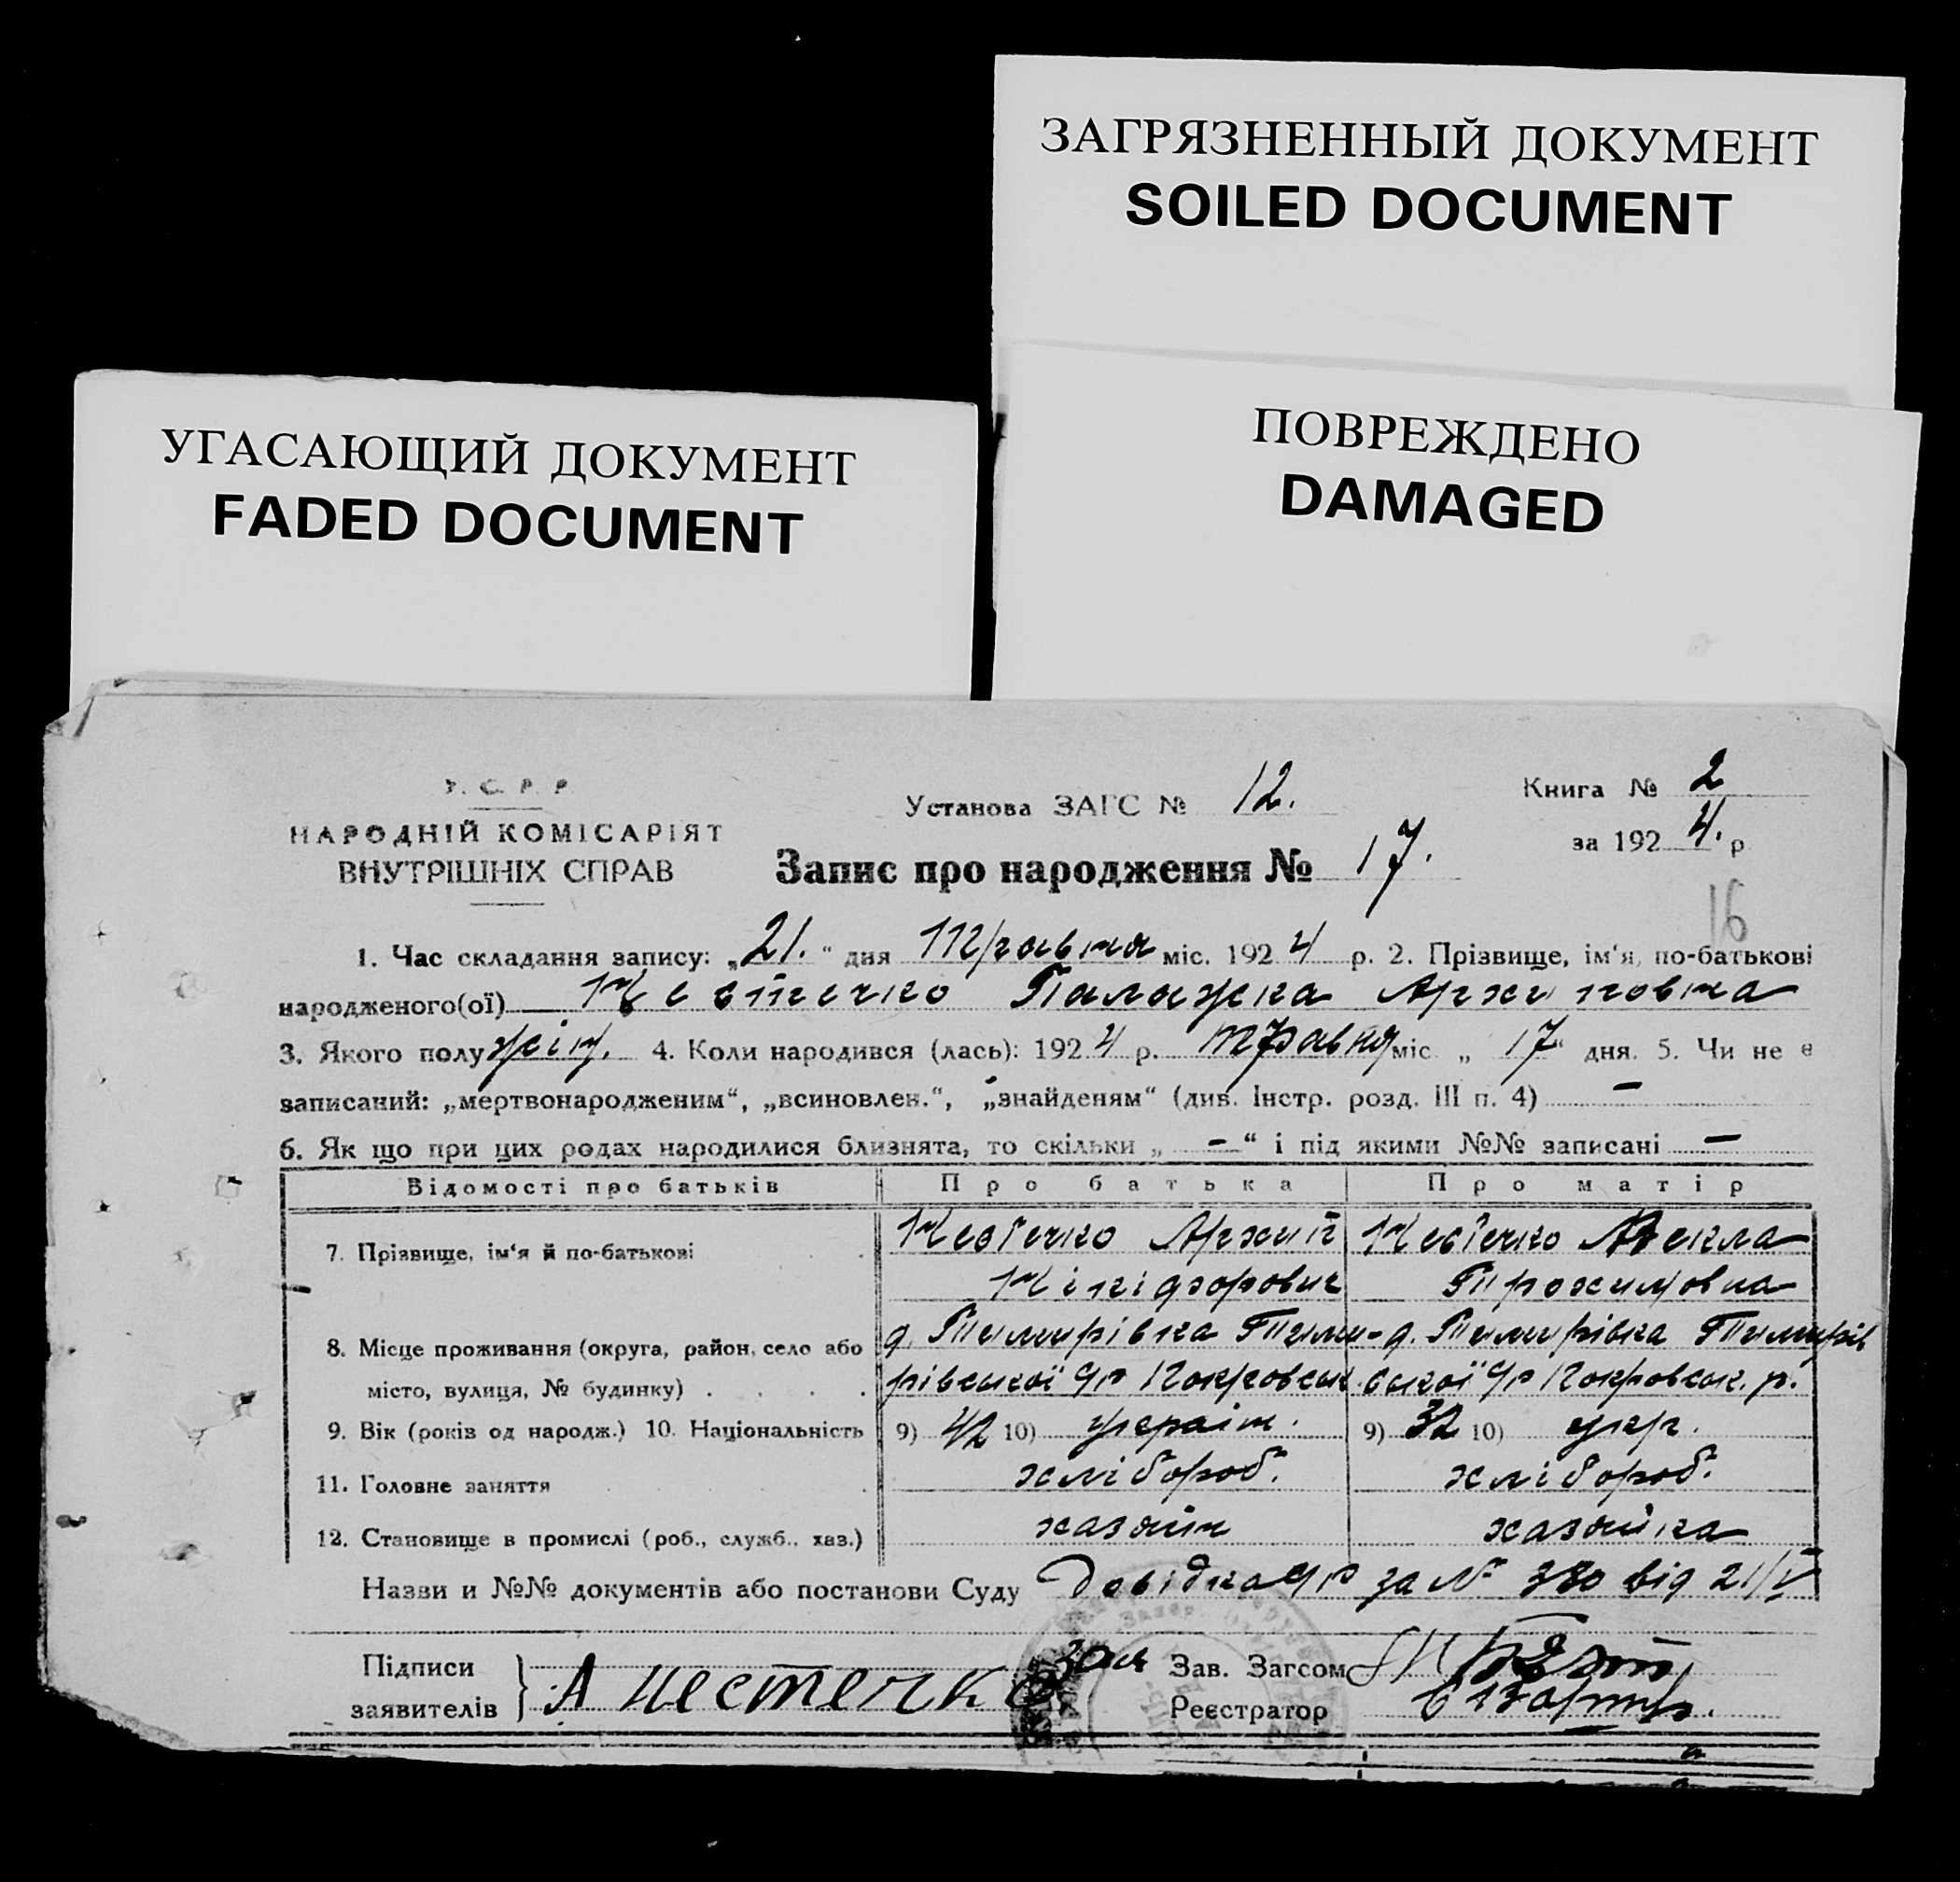 ЗАГРЯЗНЕННЫЙ ДОКУМЕНТ
SOILED DOCUMENT
УГАСАЮЩИЙ ДОКУМЕНТ
FADED DOCUMENT
ПОВРЕЖДЕНО
DAMAGED
У. С. Р. Р.
НАРОДНІЙ КОМІСАРІЯТ
ВНУТРІШНІХ СПРАВ
Установа ЗАГС № 12.
Запис про народження № 17.
Книга № 2
за 1924. р.
16
1. Час складання запису: „21.“ дня Травня міс. 1924 р. 2. Прізвище, ім'я, по-батькові
народженого(ої) Нестечко Палажка
3. Якого полу жін. 4. Коли народився (лась): 1924 р. травня міс. „17“ дня. 5. Чи не є
записаний: „мертвонародженим“, „всиновлен.“, „знайденям“ (див. Інстр. розд. III п. 4) —
6. Як що при цих родах народилися близнята, то скільки „ — “ і під якими №№ записані —
Відомості про батьків Про батька Про матір
7. Прізвище, ім'я й по-батькові Нестечко Архип Нестечко Текла
Нікіфорович
8. Місце проживання (округа, район, село або
місто, вулиця, № будинку) . . . . Покровськ. Покровськ. р.
9. Вік (років од народж.) 10. Національність 9) 42 10) україн. 9) 32 10) укр.
11. Головне заняття хлібороб. хлібороб.
12. Становище в промислі (роб., служб., хаз.) хазяїн хазяйка
Назви и №№ документів або постанови Суду Довідка за № 380 від 21/V
Підписи
заявителів А Нестечко
Зав. Загсом
Реєстратор